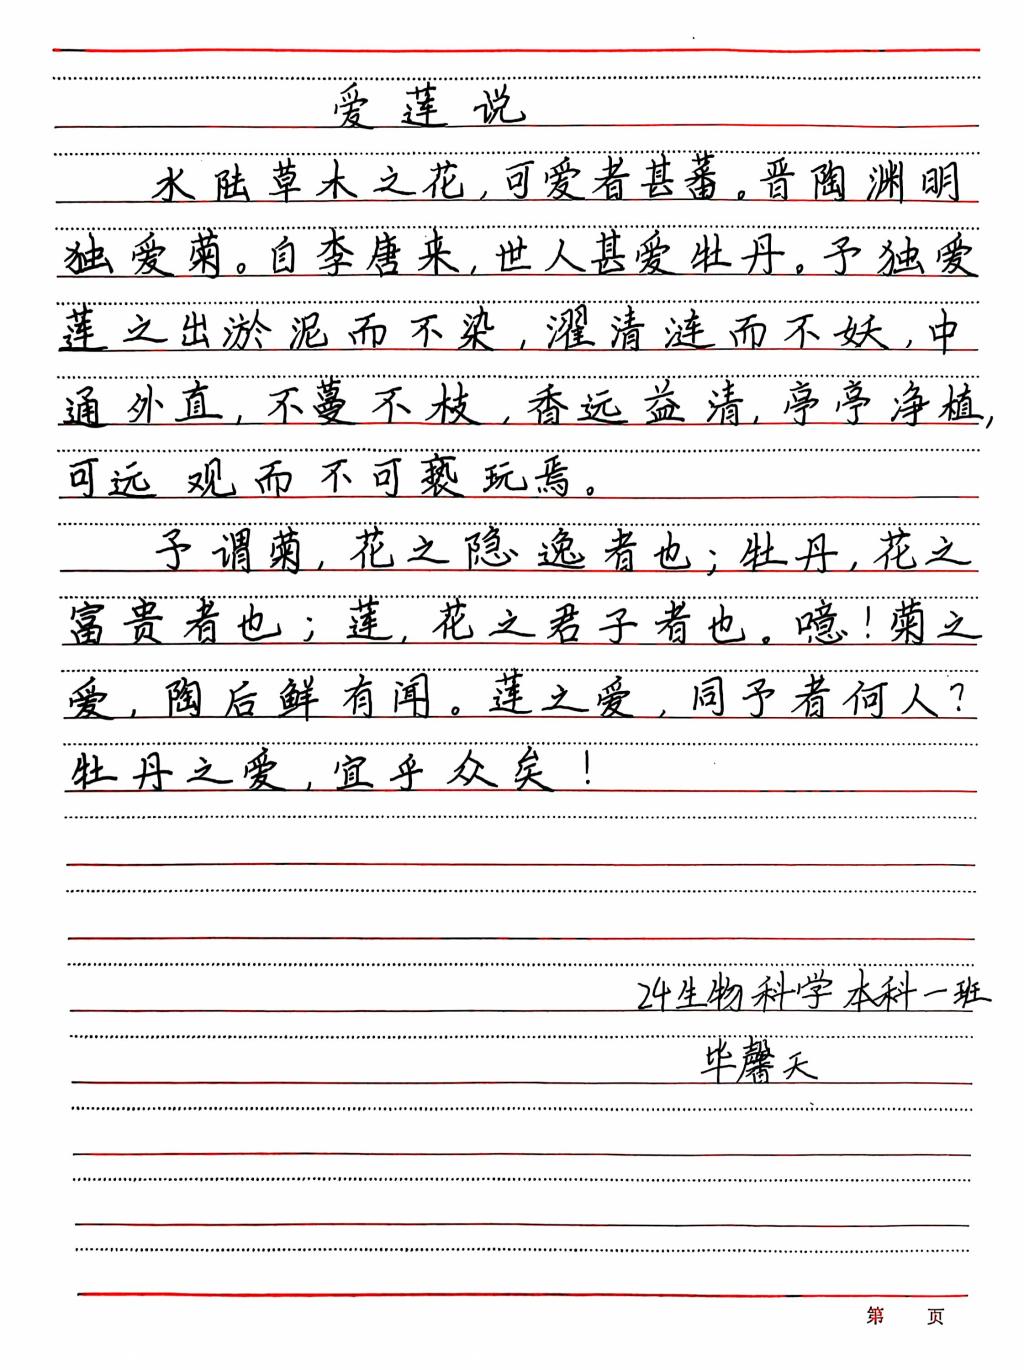 爱莲说
水陆草木之花,可爱者甚蕃。晋陶渊明
独爱菊。自李唐来,世人甚爱牡丹。予独爱
莲之出淤泥而不染,濯清涟而不妖,中
通外直,不蔓不枝,香远益清,亭亭净植,
可远观而不可亵玩焉。
予谓菊,花之隐逸者也;牡丹,花之
富贵者也;莲,花之君子者也。噫!菊之
爱,陶后鲜有闻。莲之爱,同予者何人?
牡丹之爱,宜乎众矣!
24生物科学本科一班
毕馨天
第 页